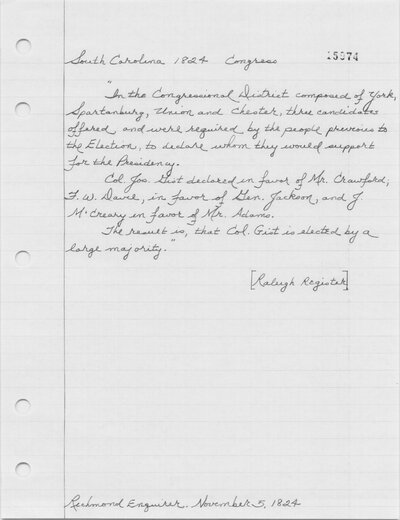 South Carolina 1824 Congress 15974
"In the Congressional District composed of York,
Spartanburg, Union and Chester, three candidates
offered and were required by the people previous to
the Election, to declare whom they would support
for the Presidency.
Col. Jos. Gist declared in favor of Mr. Crawford,
F. W. Davie, in favor of Gen. Jackson, and J.
McCreary in favor of Mr. Adams.
The result is, that Col. Gist is elected by a
large majority."
[Raleigh Register]
Richmond Enquirer. November 5, 1824